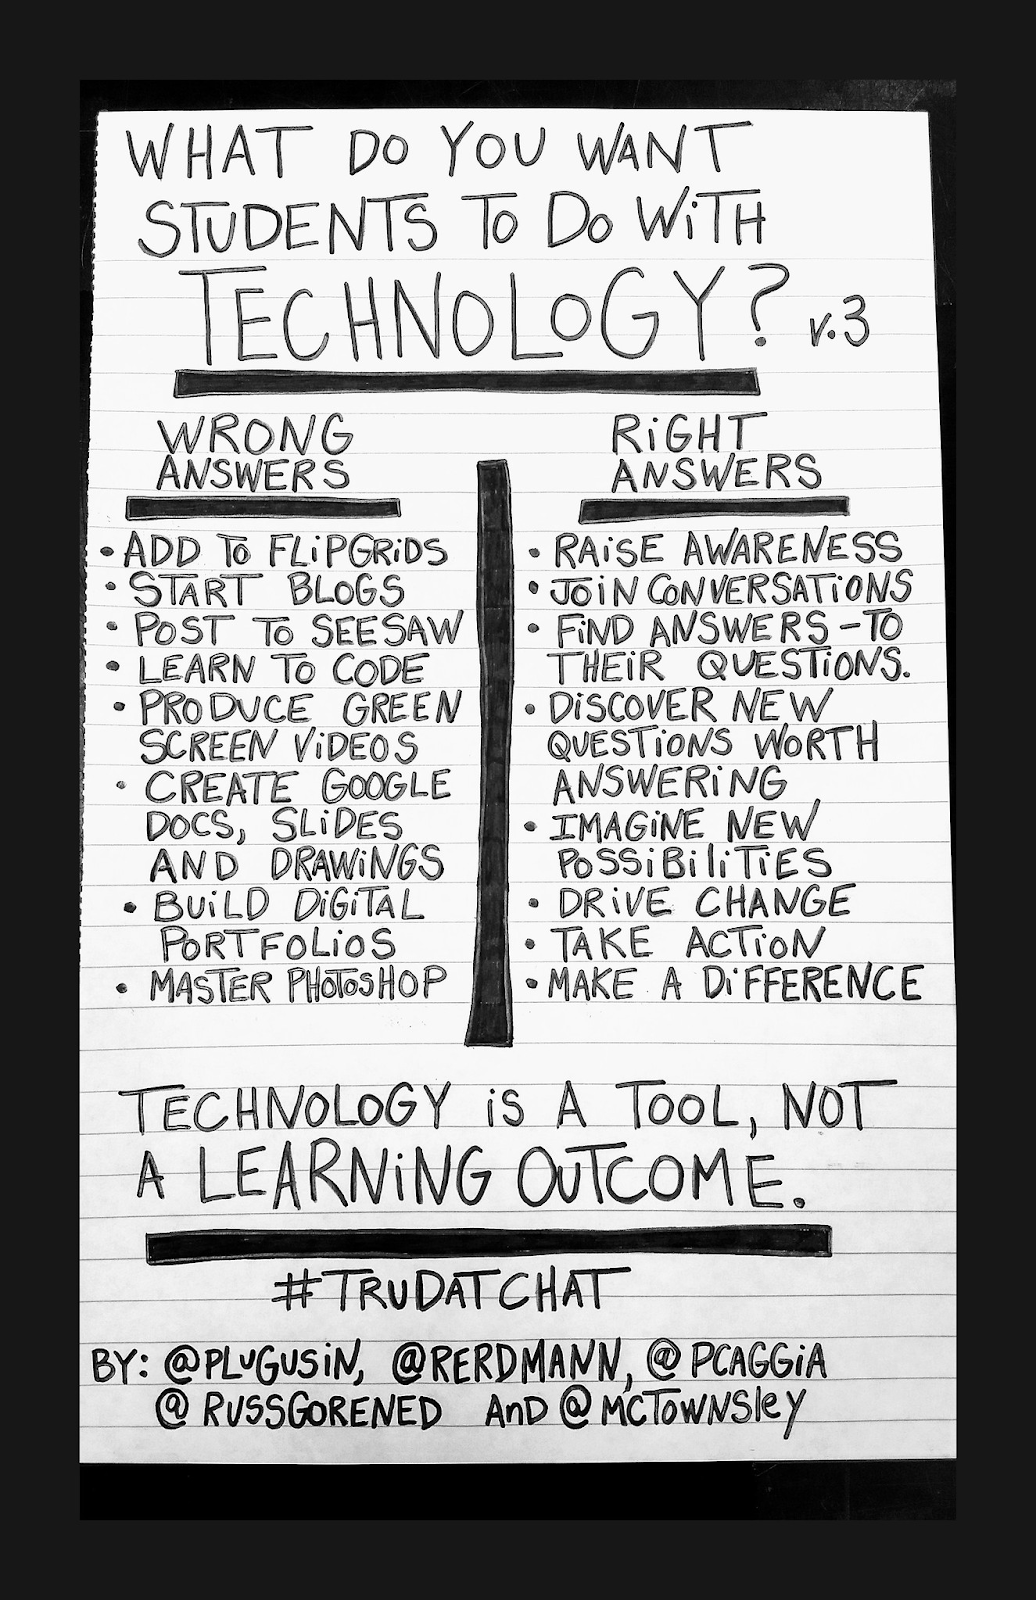 WHAT DO YOU WANT
STUDENTS TO DO WiTH
TECHNOLOGY? v.3
WRONG
ANSWERS
• ADD TO FLiPGRiDS
• START BLOGS
• POST TO SEESAW
• LEARN TO CODE
• PRODUCE GREEN
SCREEN ViDEOS
• CREATE GOOGLE
DOCS, SLiDES
AND DRAWiNGS
• BUiLD DiGiTAL
PORTFOLiOS
• MASTER PHOTOSHOP
RiGHT
ANSWERS
• RAiSE AWARENESS
• JOiN CONVERSATiONS
• FiND ANSWERS – TO
THEiR QUESTiONS.
• DiSCOVER NEW
QUESTiONS WORTH
ANSWERiNG
• IMAGiNE NEW
POSSiBiliTiES
• DRiVE CHANGE
• TAKE ACTiON
• MAKE A DiFFERENCE
TECHNOLOGY iS A TOOL, NOT
A LEARNiNG OUTCOME.
#TRUDATCHAT
BY: @PLUGUSiN, @RERDMANN, @PCAGGiA
@RUSSGORENED AnD @MCTOWNSley